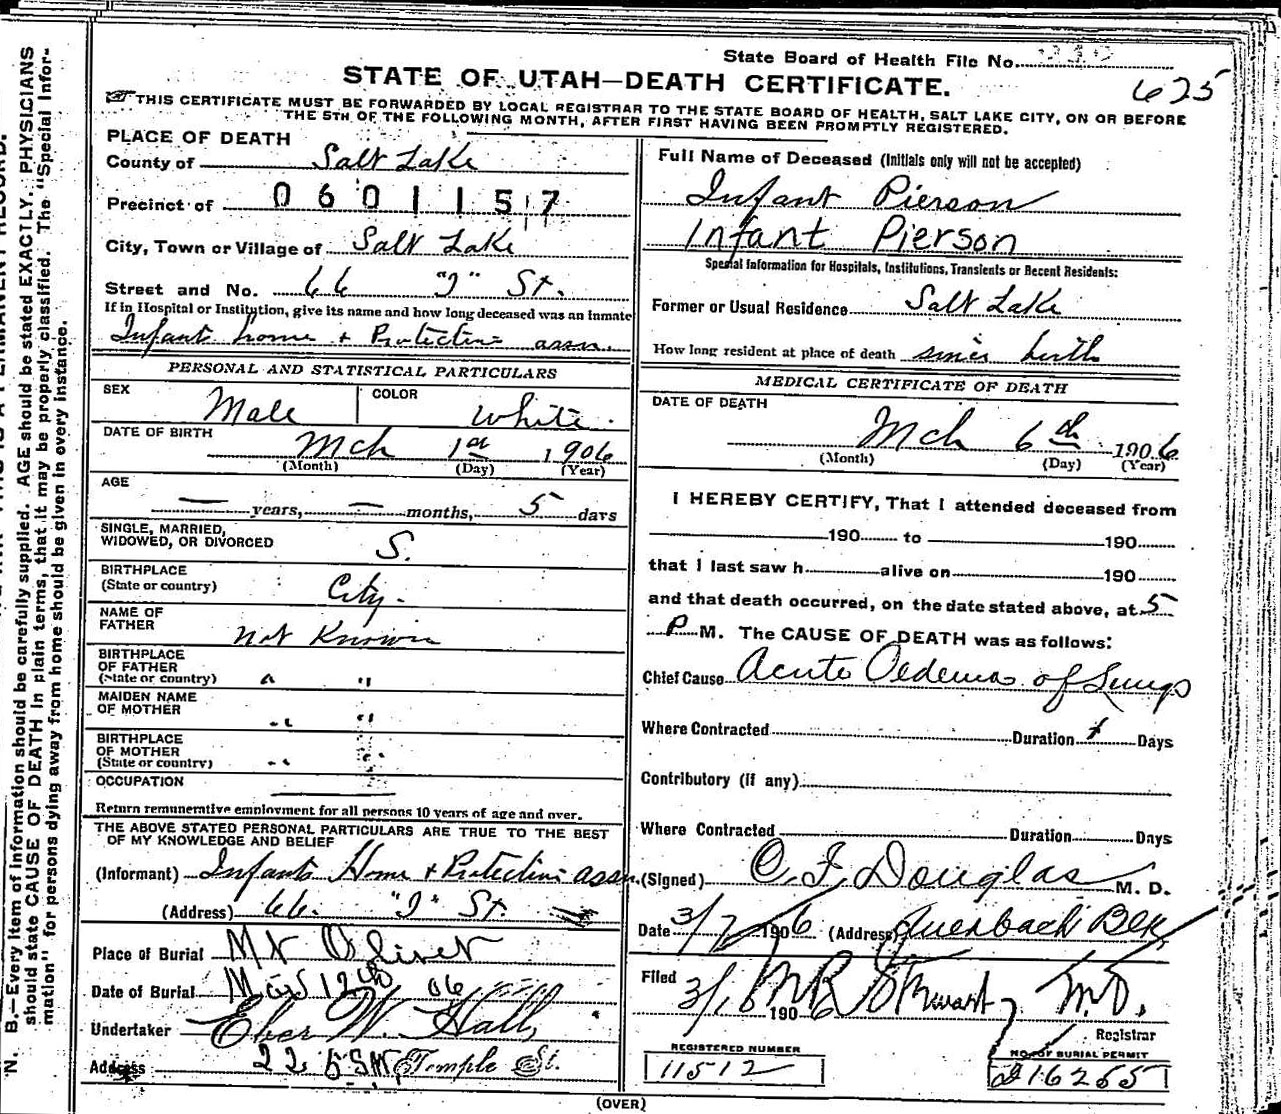 State Board of Health File No.
STATE OF UTAH—DEATH CERTIFICATE.
625
THIS CERTIFICATE MUST BE FORWARDED BY LOCAL REGISTRAR TO THE STATE BOARD OF HEALTH, SALT LAKE CITY, ON OR BEFORE
THE 5TH OF THE FOLLOWING MONTH, AFTER FIRST HAVING BEEN PROMPTLY REGISTERED.
PLACE OF DEATH
County of Salt Lake
Precinct of 0601157
City, Town or Village of Salt Lake
Street and No. 66 "J" St.
If in Hospital or Institution, give its name and how long deceased was an inmate
Infants home + Protective assn.
PERSONAL AND STATISTICAL PARTICULARS
SEX Male COLOR White.
DATE OF BIRTH Mch 1st 1906
(Month) (Day) (Year)
AGE
— years, — months, 5 days
SINGLE, MARRIED,
WIDOWED, OR DIVORCED S.
BIRTHPLACE
(State or country) City.
NAME OF
FATHER not Known
BIRTHPLACE
OF FATHER
(State or country) " "
MAIDEN NAME
OF MOTHER " "
BIRTHPLACE
OF MOTHER
(State or country) " "
OCCUPATION
Return remunerative employment for all persons 10 years of age and over.
THE ABOVE STATED PERSONAL PARTICULARS ARE TRUE TO THE BEST
OF MY KNOWLEDGE AND BELIEF
(Informant) Infants Home + Protective assn.
(Address) 66. "J" St.
Place of Burial Mt Olivet
Date of Burial Mar 12th 06
Undertaker Eber W. Hall
Address 22 Temple St.
Full Name of Deceased (Initials only will not be accepted)
Infant Pierson
Infant Pierson
Special Information for Hospitals, Institutions, Transients or Recent Residents:
Former or Usual Residence Salt Lake
How long resident at place of death since birth
MEDICAL CERTIFICATE OF DEATH
DATE OF DEATH
Mch 6th 1906
(Month) (Day) (Year)
I HEREBY CERTIFY, That I attended deceased from
190 to 190
that I last saw h alive on 190
and that death occurred, on the date stated above, at 5
P M. The CAUSE OF DEATH was as follows:
Chief Cause Acute Oedema of Lungs
Where Contracted Duration 1 Days
Contributory (if any)
Where Contracted Duration Days
(Signed) C. F. Douglas M. D.
Date 3/7 1906 (Address) Auerbach Blk
Filed 3/ 1906 M R Stewart, M.D.
Registrar
REGISTERED NUMBER
11512
NO. OF BURIAL PERMIT
216255
(OVER)
N. B.—Every item of information should be carefully supplied. AGE should be stated EXACTLY. PHYSICIANS
should state CAUSE OF DEATH in plain terms, that it may be properly classified. The "Special Infor-
mation" for persons dying away from home should be given in every instance.